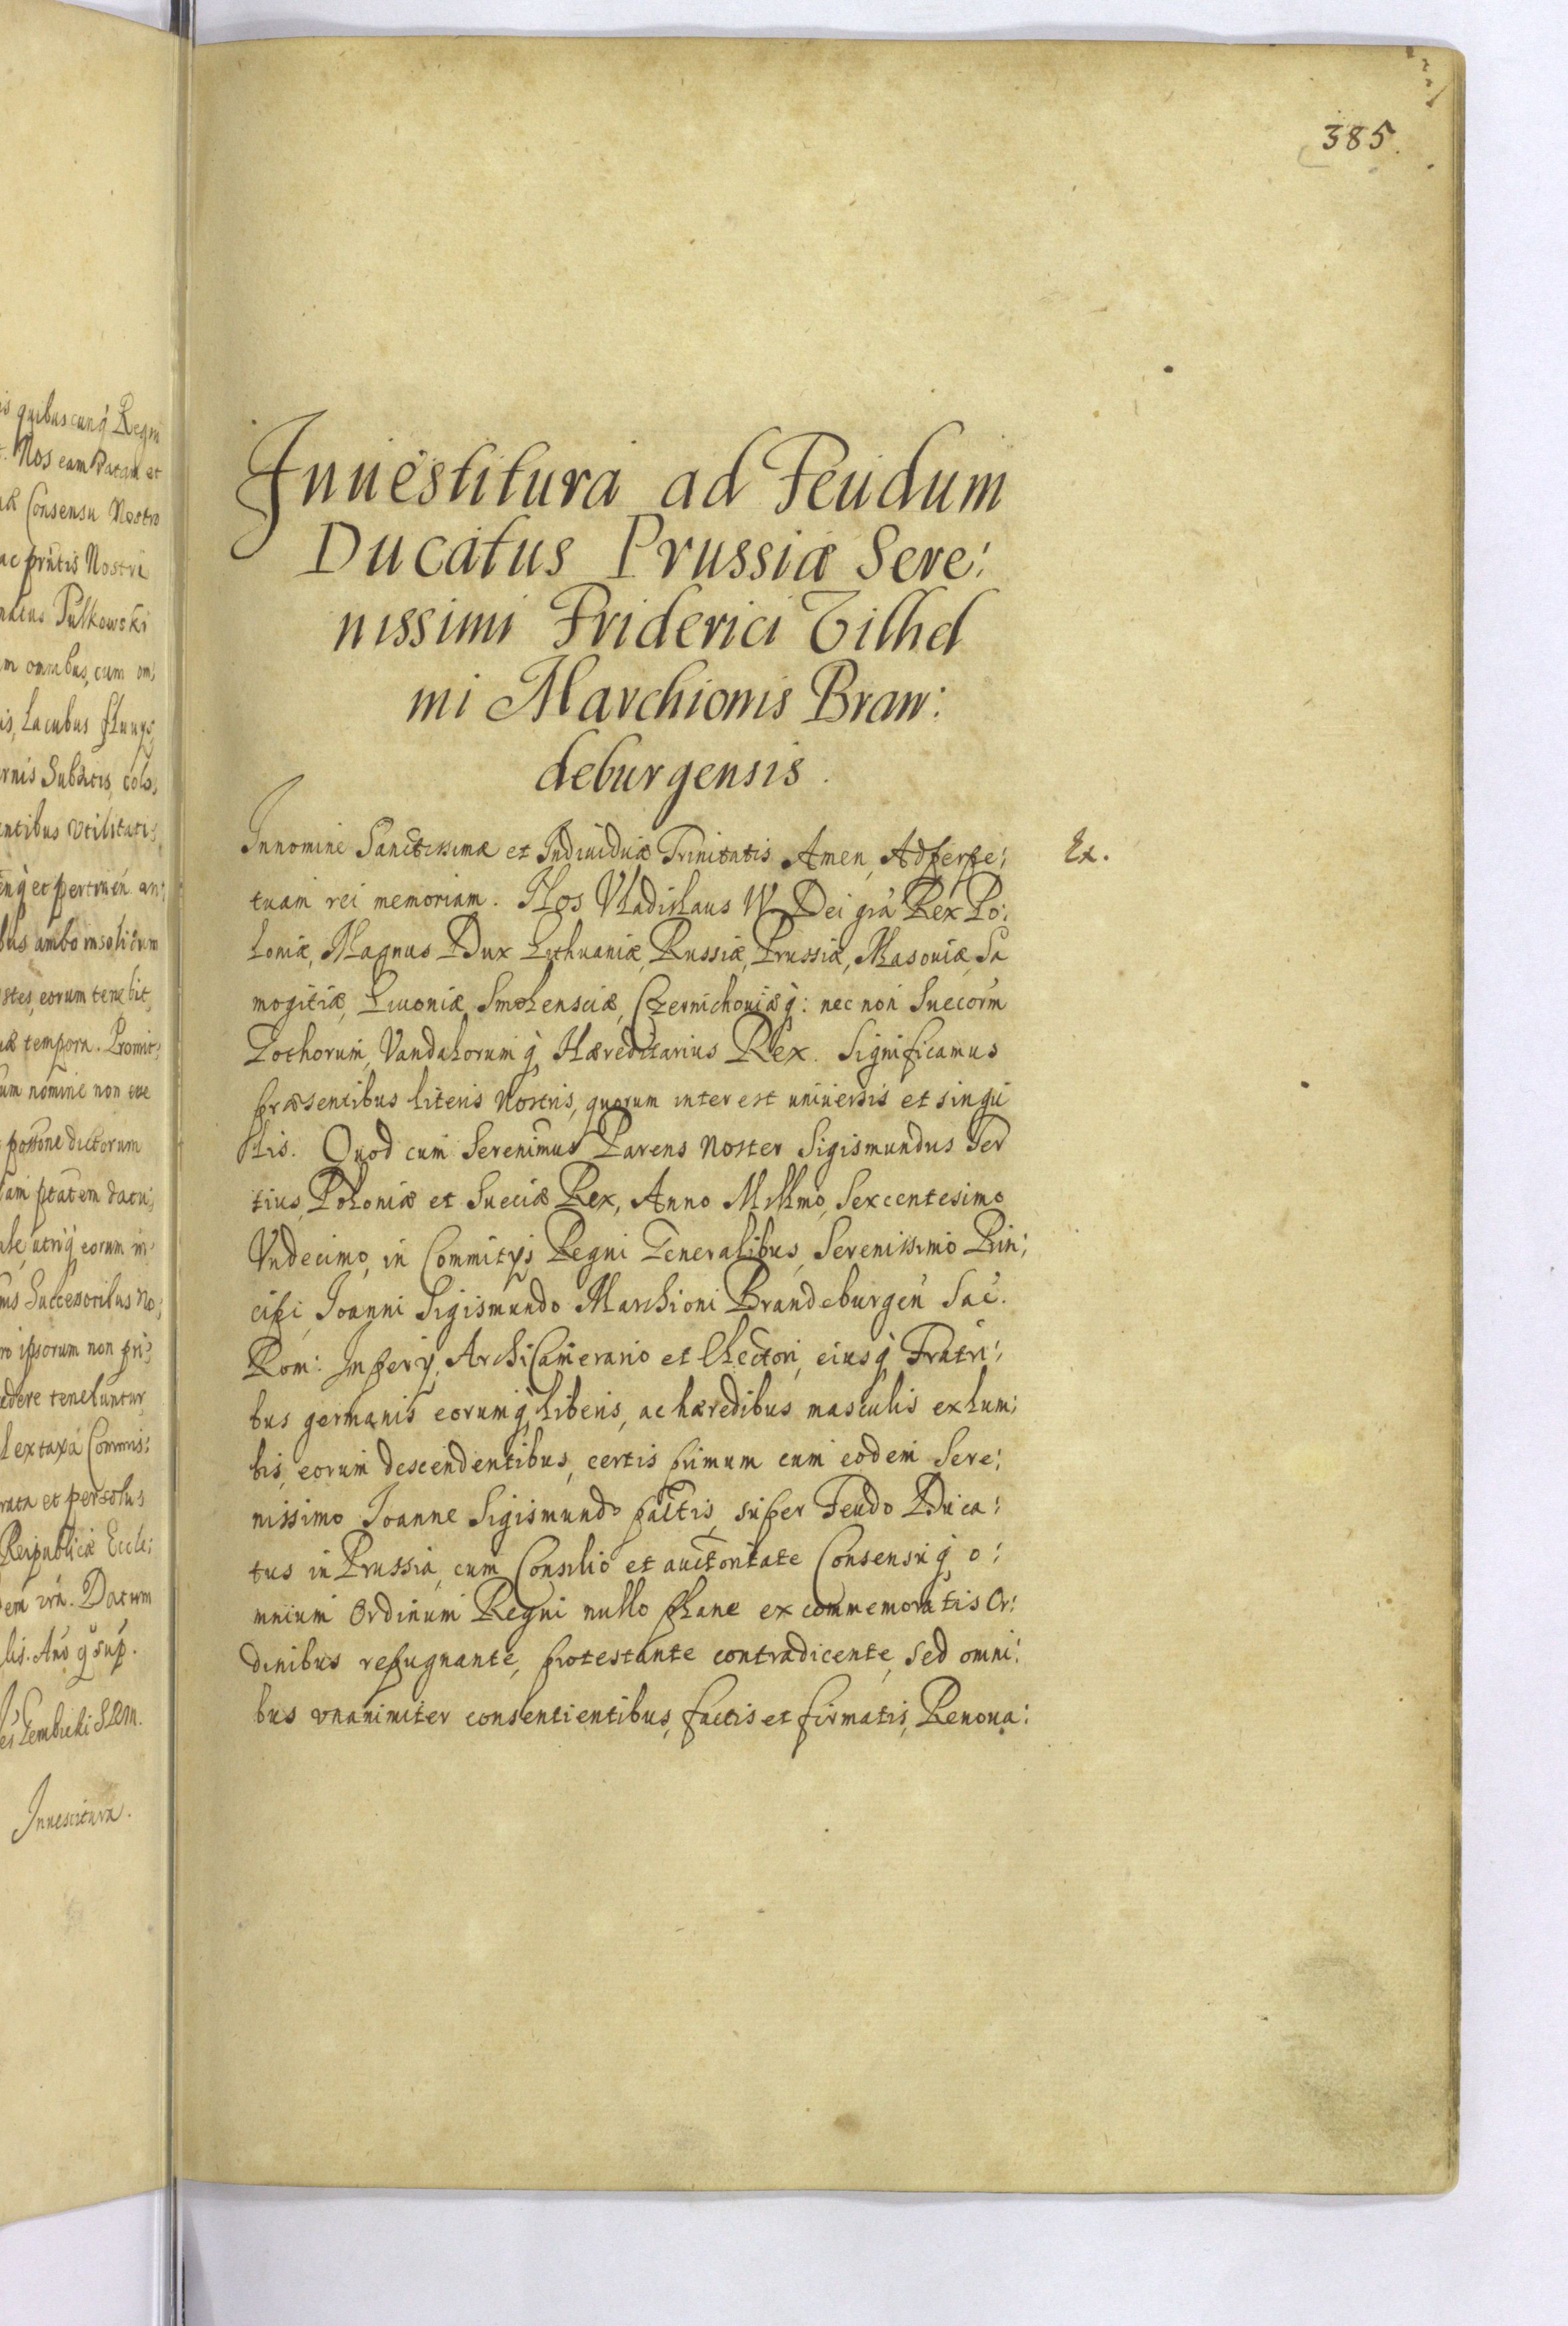 is quibuscunq́ Regni
. Nos eam Ratam et
Consensu Nostro
ac pñtis Nostri
natus Pulkowski
m omnibus, cum om;
is, Lacubus fluuys,
rnis Subditis, colo;
entibus Vtilitatis,
enq́ et pertinen̄ an;
bus ambo insolidum
stes, eorum tenebit,
tempora. Promit;
um nomine non eue
possone dictorum
iam ptatem datu;
utriq́ eorum in;
ms Successoribus No;
ro ipsorum non pri;
edere tenebuntur,
l ex taxa Commis;
rata et persolus
Reipublicæ Eccle;
em vrã. Datum
lis. Año q̃ sup̃.
es Gembicki SRM.
Inuestitura.
385.
Inuestitura ad Feudum
Ducatus Prussiæ Sere:
nissimi Friderici Vilhel
mi Marchionis Bran:
deburgensis.
Innomine Sanctissimæ et Indiuiduæ Trinitatis Amen, Adperpe;
Ex.
tuam rei memoriam. Nos Vladislaus IV Dei grã Rex Po:
loniæ, Magnus Dux Lithuaniæ, Russiæ, Prussiæ, Masouiæ, Sa
mogitiæ, Liuoniæ, Smolensciæ, Czernichouiæq́: nec non Suecorm̃
Gothorum, Vandalorumq́, Hæreditarius Rex. Significamus
præsentibus literis Nostris, quorum interest uniuersis et singu
lis. Quod cum Serenimus Parens Noster Sigismundus Ter
tius, Poloniæ et Sueciæ Rex, Anno Millmo, Sexcentesimo
Vndecimo, in Commitys Regni Generalibus, Serenissimo Prin;
cipi, Joanni Sigismundo Marchioni Brandeburgen̄ Sac̄.
Rom: Impery, ArchiCamerario et Electori, eiusq́ Fratri;
bus germanis eorumq́, liberis, ac hæredibus masculis ex lum;
bis, eorum descendentibus, certis primum cum eodem Sere;
nissimo Joanne Sigismundo pactis, super Feudo Duca:
tus in Prussia, cum Consilio et auctoritate Consensuq́, o:
mnium Ordinum Regni nullo plane ex commemoratis Or:
dinibus repugnante, protestante contradicente, sed omni:
bus vnanimiter consentientibus, factis et firmatis, Renoua: